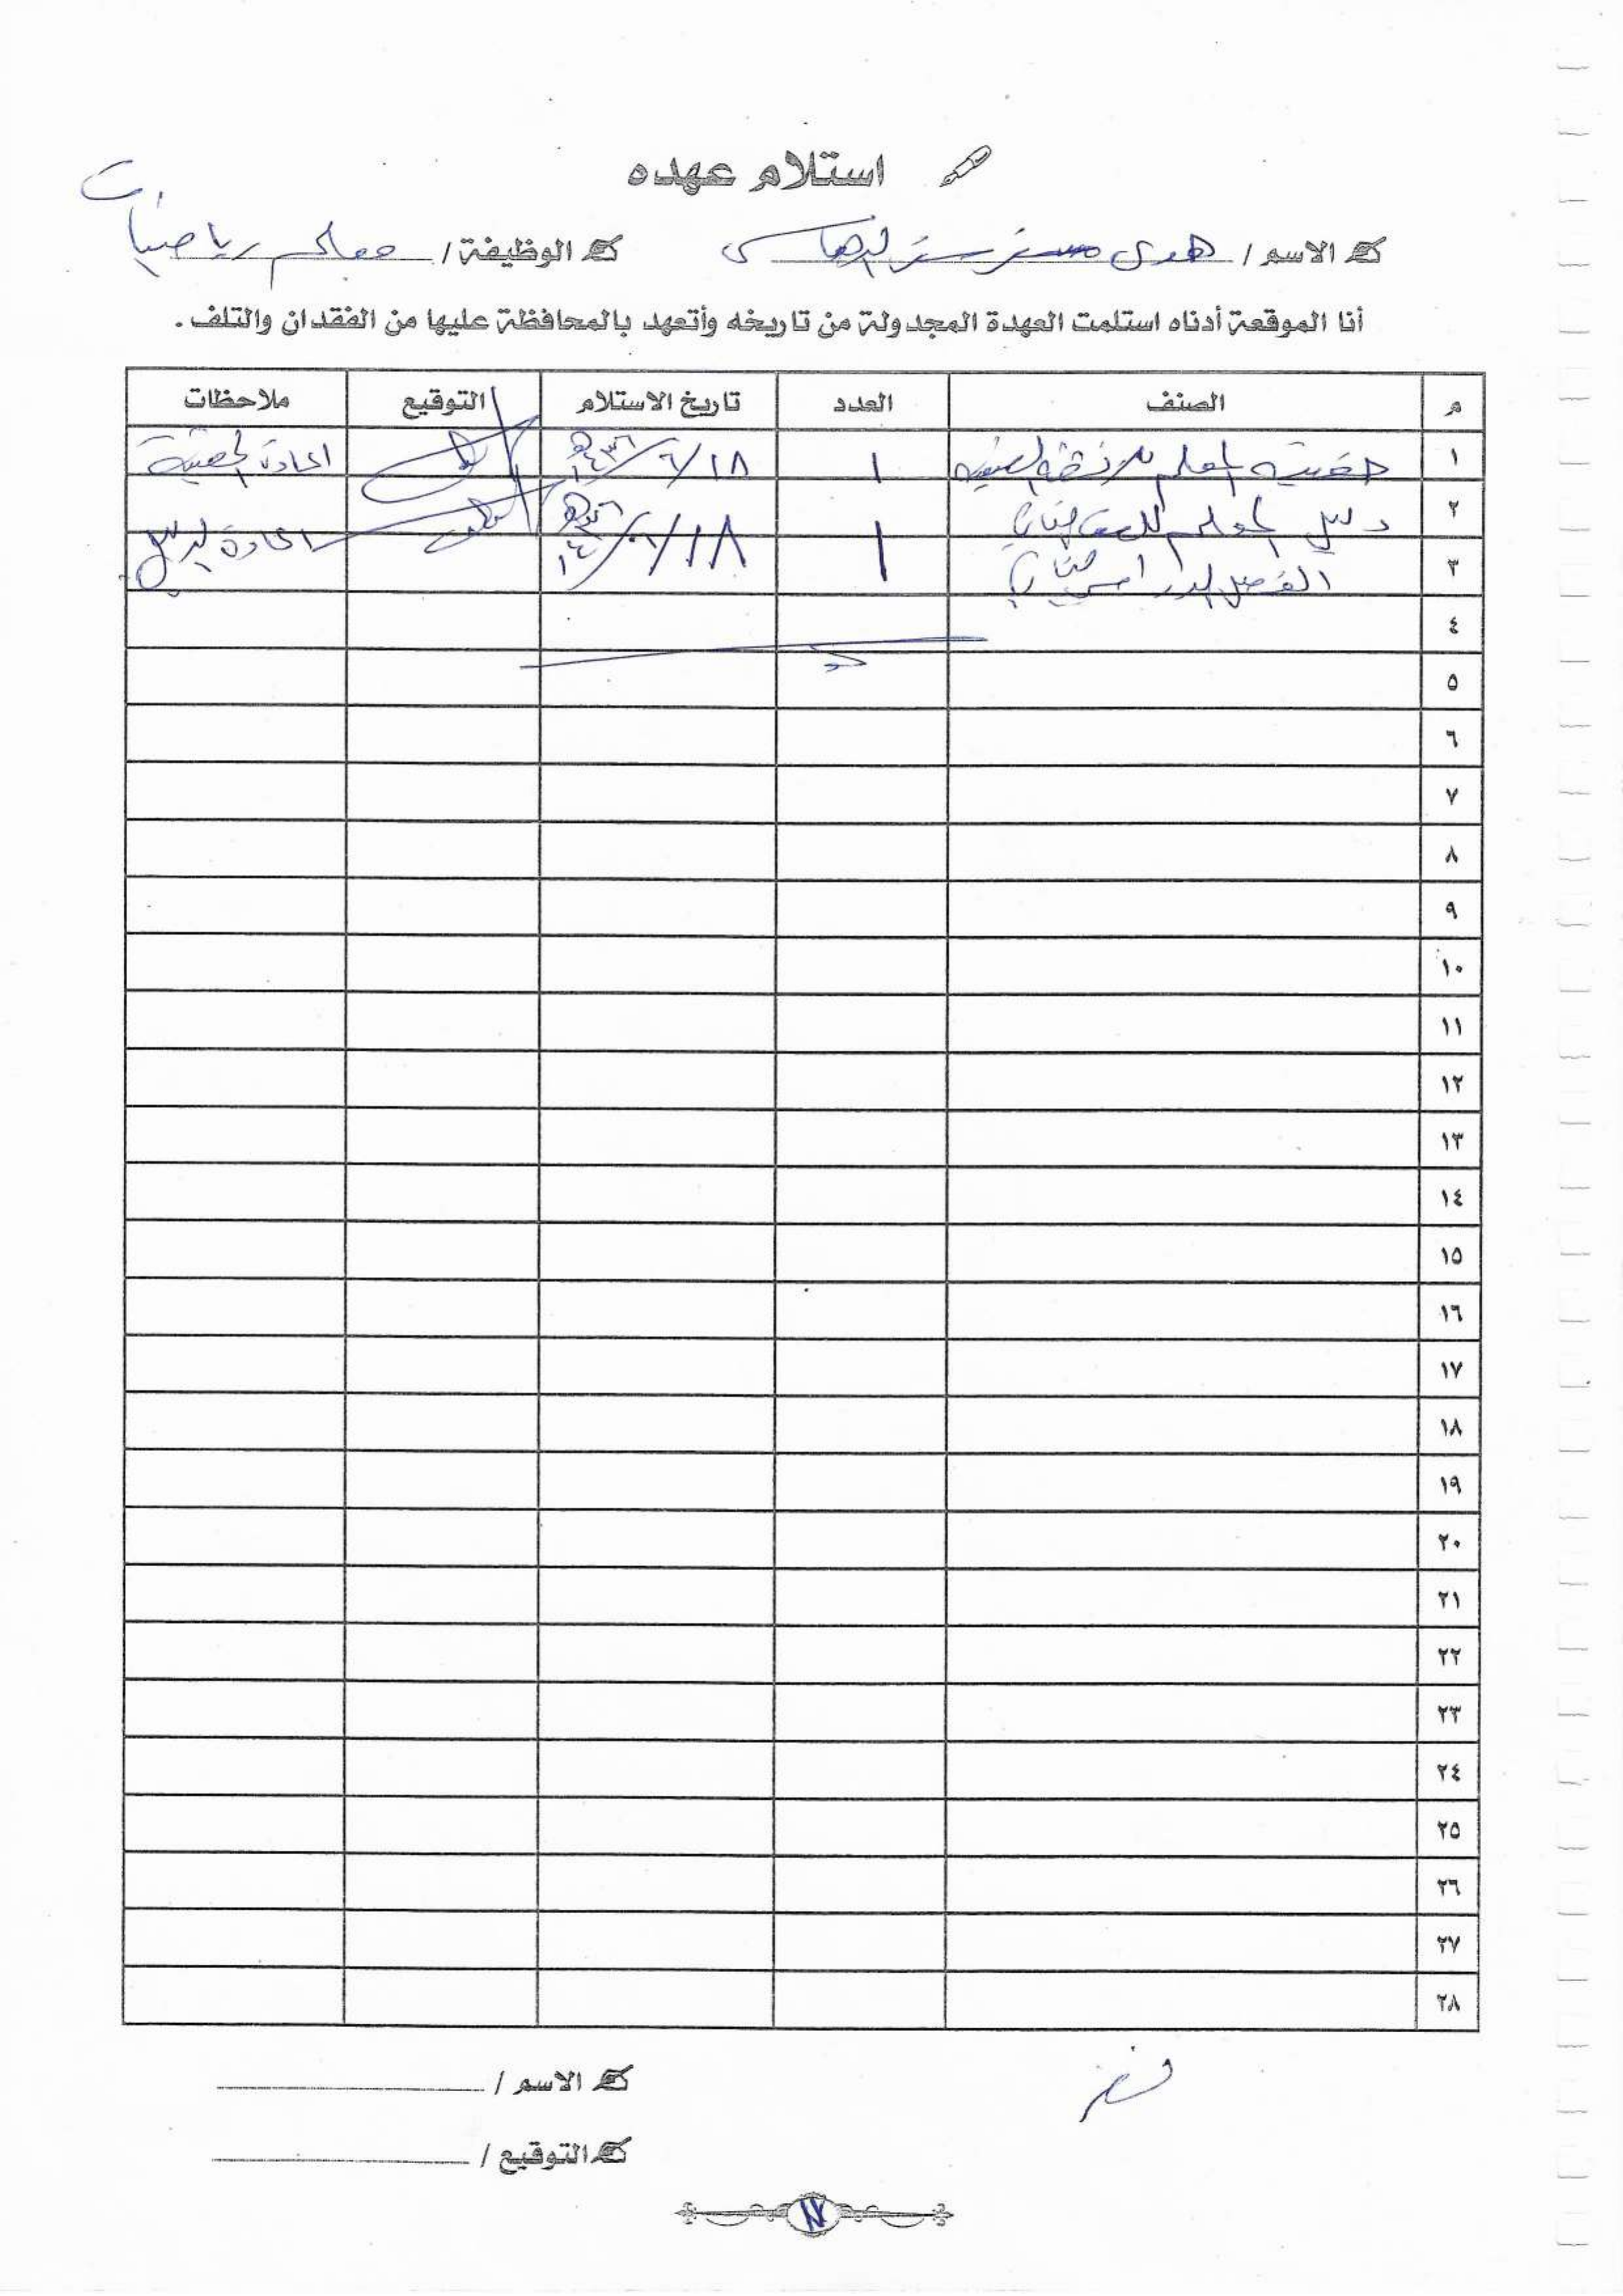 استلام عهده
الاسم / هدى مسفر
الوظيفة / معلم رياضيات
أنا الموقعة أدناه استلمت العهدة المجدولة من تاريخه وأتعهد بالمحافظة عليها من الفقدان والتلف .
م الصنف العدد تاريخ الاستلام التوقيع ملاحظات
١ حقيبة المعلم ١ ١٨/٦/١٤٣٦هـ اعادة الحقيبة
٢ دليل المعلم للصف الثاني ١ ١٨/٦/١٤٣٦هـ اعادة الدليل
٣ الفصل الدراسي الثاني
٤
٥
٦
٧
٨
٩
١٠
١١
١٢
١٣
١٤
١٥
١٦
١٧
١٨
١٩
٢٠
٢١
٢٢
٢٣
٢٤
٢٥
٢٦
٢٧
٢٨
الاسم /
التوقيع /